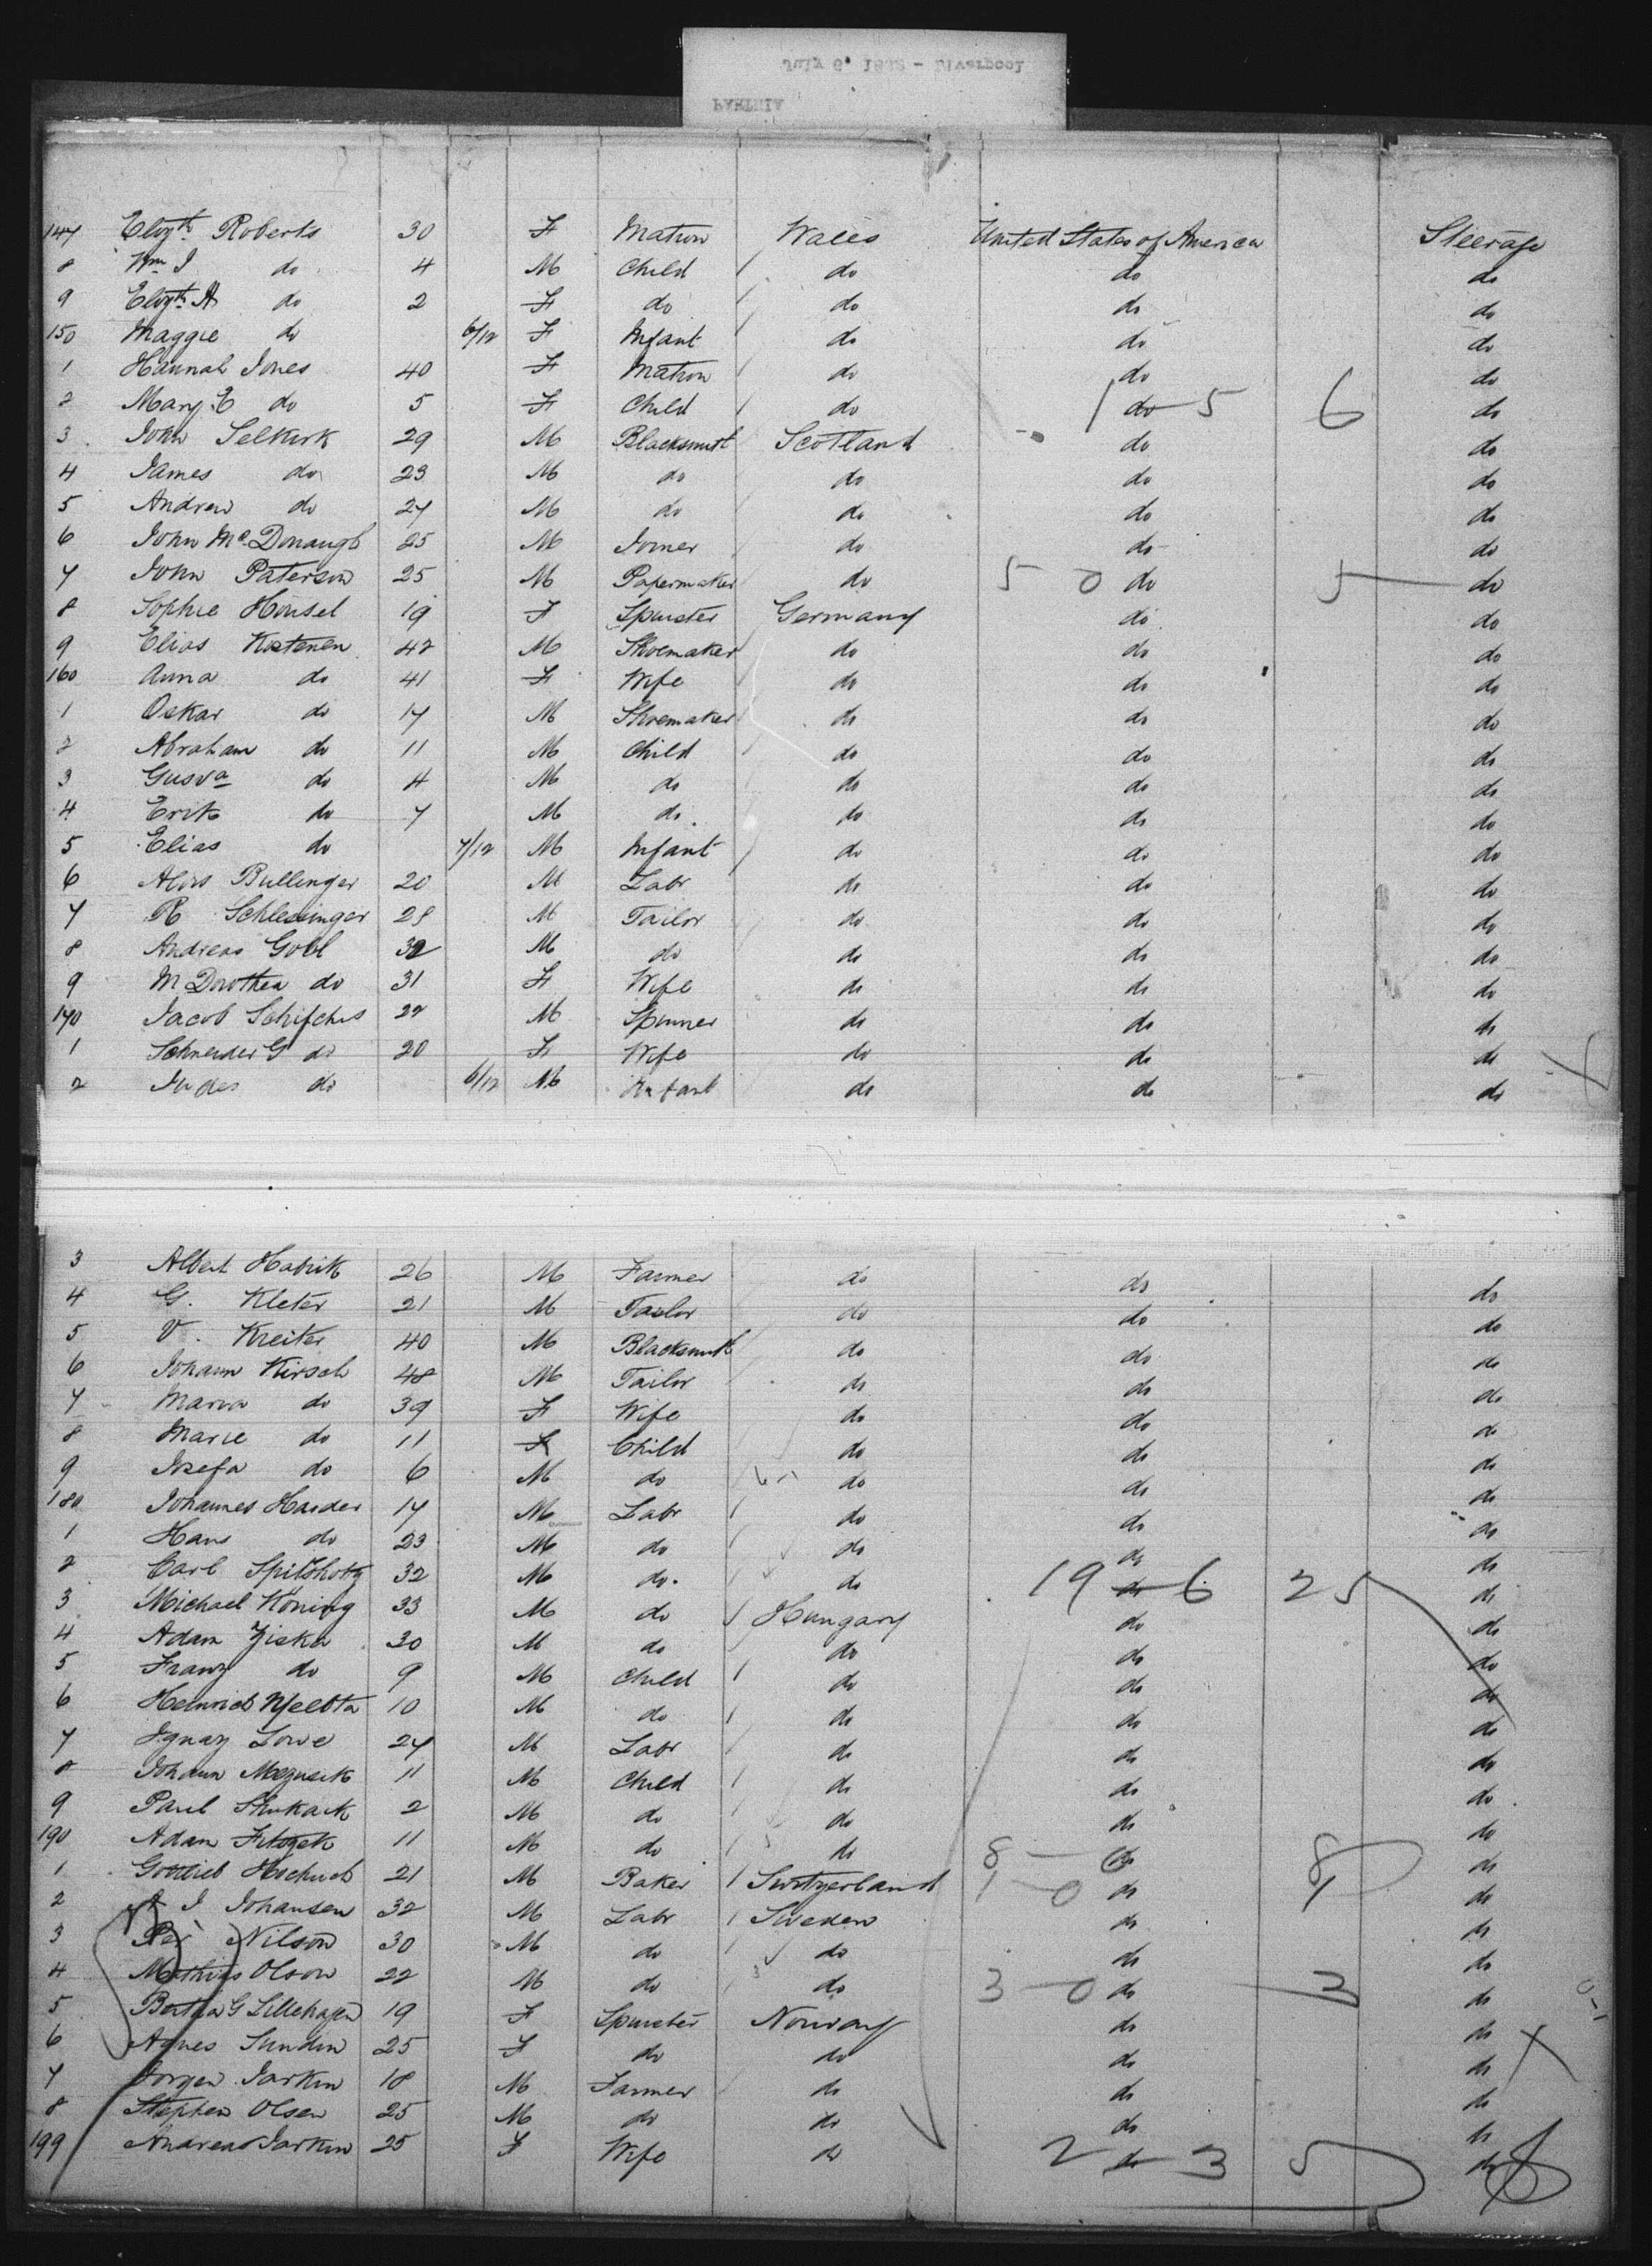 147 Elizth Roberts 30 F Matron Wales United States of America Steerage
8 Wm J do 4 M Child do do do
9 Elizth A do 2 F do do do do
150 Maggie do 6/12 F Infant do do do
1 Hannah Jones 40 F Matron do do do
2 Mary E do 5 F Child do do do
1 5 6
3 John Selkirk 29 M Blacksmith Scotland do do
4 James do 23 M do do do do
5 Andrew do 27 M do do do do
6 John McDonaugh 25 M Joiner do do do
7 John Paterson 25 M Papermaker do do do
5 0 5
8 Sophie Hinsel 19 F Spinster Germany do do
9 Elias Kostenen 42 M Shoemaker do do do
160 Anna do 41 F Wife do do do
1 Oskar do 17 M Shoemaker do do do
2 Abraham do 11 M Child do do do
3 Gusva do 4 M do do do do
4 Erik do 7 M do do do do
5 Elias do 7/12 M Infant do do do
6 Alois Bullinger 20 M Labr do do do
7 R Schlessinger 28 M Tailor do do do
8 Andreas Gobl 32 M do do do do
9 M Dorothea do 31 F Wife do do do
170 Jacob Schifches 22 M Spinner do do do
1 Schneider G do 20 F Wife do do do
2 Judes do 6/12 M Infant do do do
3 Albert Habrik 26 M Farmer do do do
4 G. Kleter 21 M Tailor do do do
5 V. Kreiter 40 M Blacksmith do do do
6 Johann Kirsch 48 M Tailor do do do
7 Maria do 39 F Wife do do do
8 Marie do 11 F Child do do do
9 Josefa do 6 M do do do do
180 Johannes Harder 17 M Labr do do do
1 Hans do 23 M do do do do
2 Carl Spitshotz 32 M do do do do
19 6 25
3 Michael Köning 33 M do Hungary do do
4 Adam Ziska 30 M do do do do
5 Franz do 9 M Child do do do
6 Heinrich 10 M do do do do
7 Ignaz Lowe 24 M Labr do do do
8 Johann 11 M Child do do do
9 Paul 2 M do do do do
190 Adam 11 M do do do do
8 8
1 Gottlieb 21 M Baker Switzerland do do
1 0 1
2 J Johansen 32 M Labr Sweden do do
3 Per Nilson 30 M do do do do
4 Mathias Olson 22 M do do do do
3 0 3
5 Bertha G Lillehagen 19 F Spinster Norway do do
6 Agnes Sundin 25 F do do do do
7 Jorgen Jarkin 18 M Farmer do do do
8 Stephen Olsen 25 M do do do do
199 Andreas Jarkin 25 F Wife do do do
2 3 5